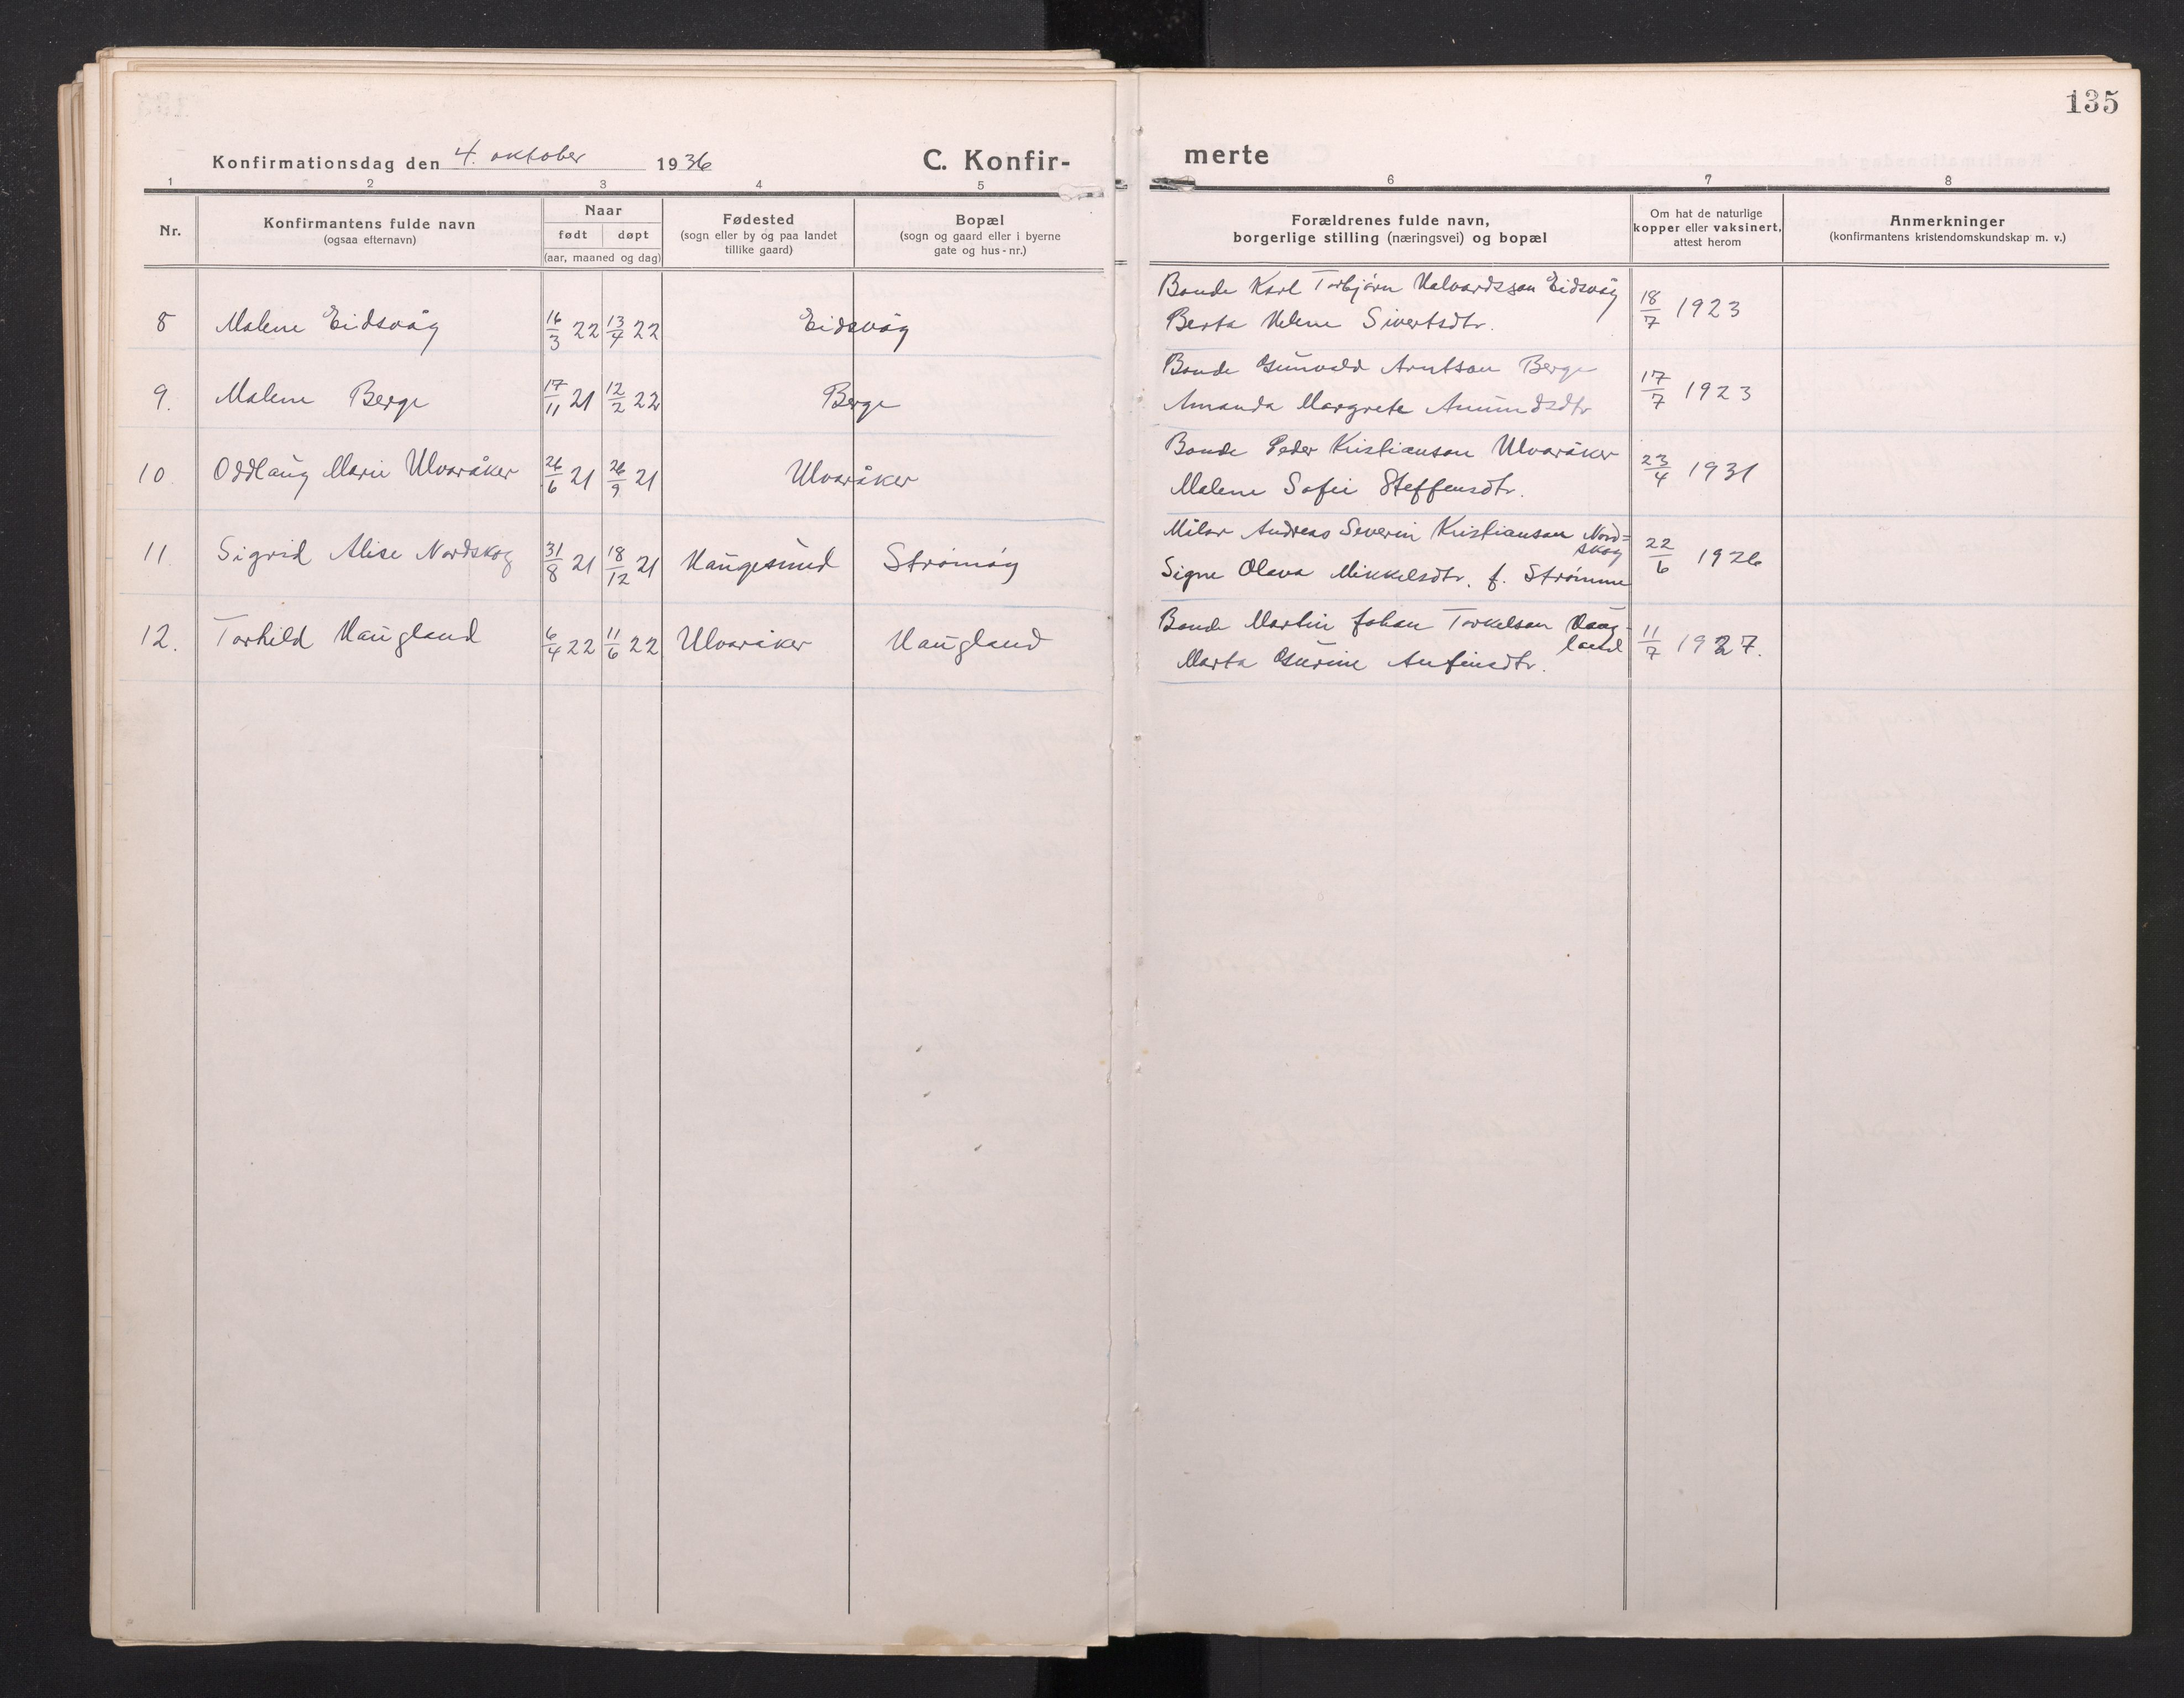 135
Konfirmationsdag den 4. oktober 1936 C. Konfir- merte
1 2 3 4 5 6 7 8
Nr. Konfirmantens fulde navn (ogsaa efternavn) Naar født døpt (aar, maaned og dag) Fødested (sogn eller by og paa landet tillike gaard) Bopæl (sogn og gaard eller i byerne gate og hus-nr.) Forældrenes fulde navn, borgerlige stilling (næringsvei) og bopæl Om hat de naturlige kopper eller vaksinert, attest herom Anmerkninger (konfirmantens kristendomskundskap m. v.)
8 Malene Eidsvåg 16/3 22 13/4 22 Eidsvåg Bonde Karl Torbjørn Halvardsson Eidsvåg 18/7 1923
Berta Helene Sivertsdtr.
9. Malene Berge 17/11 21 12/2 22 Berge Bonde Gunvald Arntson Berge 17/7 1923
Amanda Margrete Amundsdtr
10 Oddlaug Marie Ulvaråker 26/6 21 26/9 21 Ulvaråker Bonde Peder Kristianson Ulvaråker 23/4 1931
Malene Sofie Steffensdtr.
11. Sigrid Alise Nordskog 31/8 21 18/12 21 Haugesund Strømøy Målar Andreas Severin Kristianson Nord=skog 22/6 1926
Signe Olava Mikkelsdtr. f. Strømme
12. Torhild Haugland 6/4 22 11/6 22 Ulvaråker Haugland Bonde Martin Johan Torkelson Haug-land 11/7 1927.
Marta Gurine Anfinsdtr.